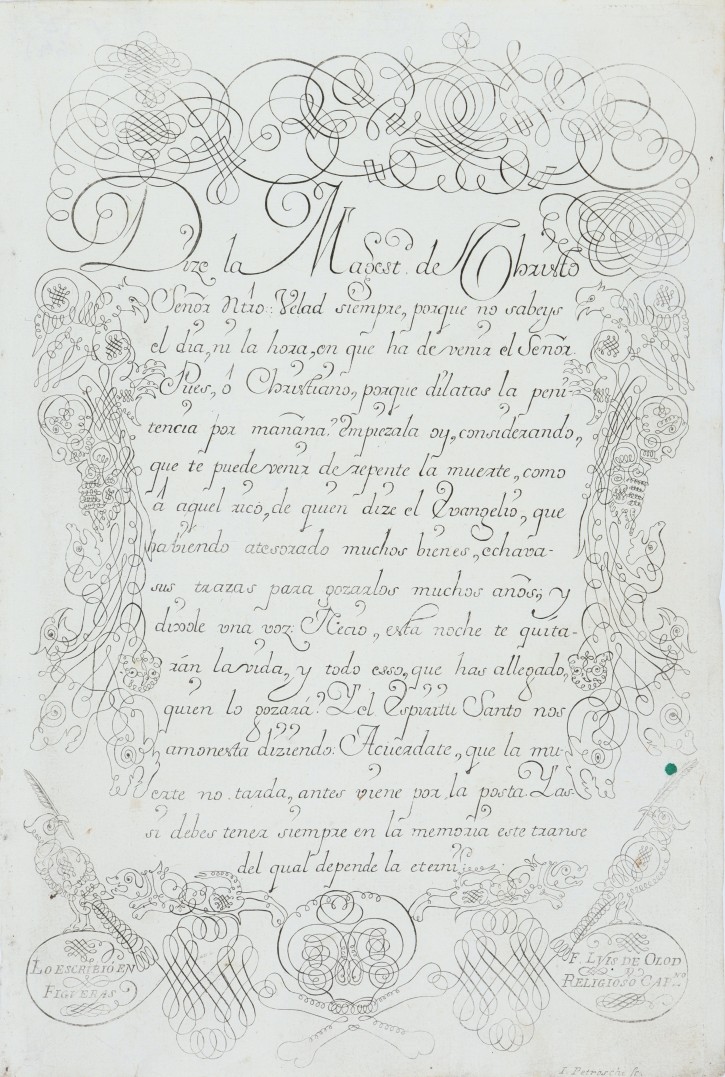 Dize la Magest. de Christo
Señor Ntro: Velad siempre, porque no sabeys
el dia, ni la hora, en que ha de venir el Señor.
Pues, ó Christiano, porque dilatas la peni-
tencia por mañana? empiezala oy, considerando,
que te puede venir de repente la muerte, como
á aquel rico, de quien dize el Evangelio, que
habiendo atesorado muchos bienes, echava
sus trazas para gozarlos muchos años; y
dixole una voz: Necio, esta noche te quita-
rán la vida, y todo esso, que has allegado,
quien lo gozará? Y el Espiritu Santo nos
amonesta diziendo: Acuerdate, que la mu-
erte no tarda, antes viene por la posta. Y as
si debes tener siempre en la memoria este transe
del qual depende la
LO ESCRIBIÓ EN
FIGUERAS
F. LVIS DE OLOD
RELIGIOSO CAP.no
I. Petraschi sc.